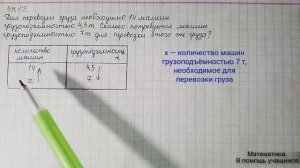 Для перевозки груза необходимо 14 машин
грузоподъёмностью 4,5 т. Сколько потребуется машин
грузоподъёмностью 7 т для перевозки этого же груза?
количество машин
грузоподъёмность т
14 4,5
x 7
x — количество машин
грузоподъёмностью 7 т,
необходимое для
перевозки груза
Математика.
В помощь учащимся.